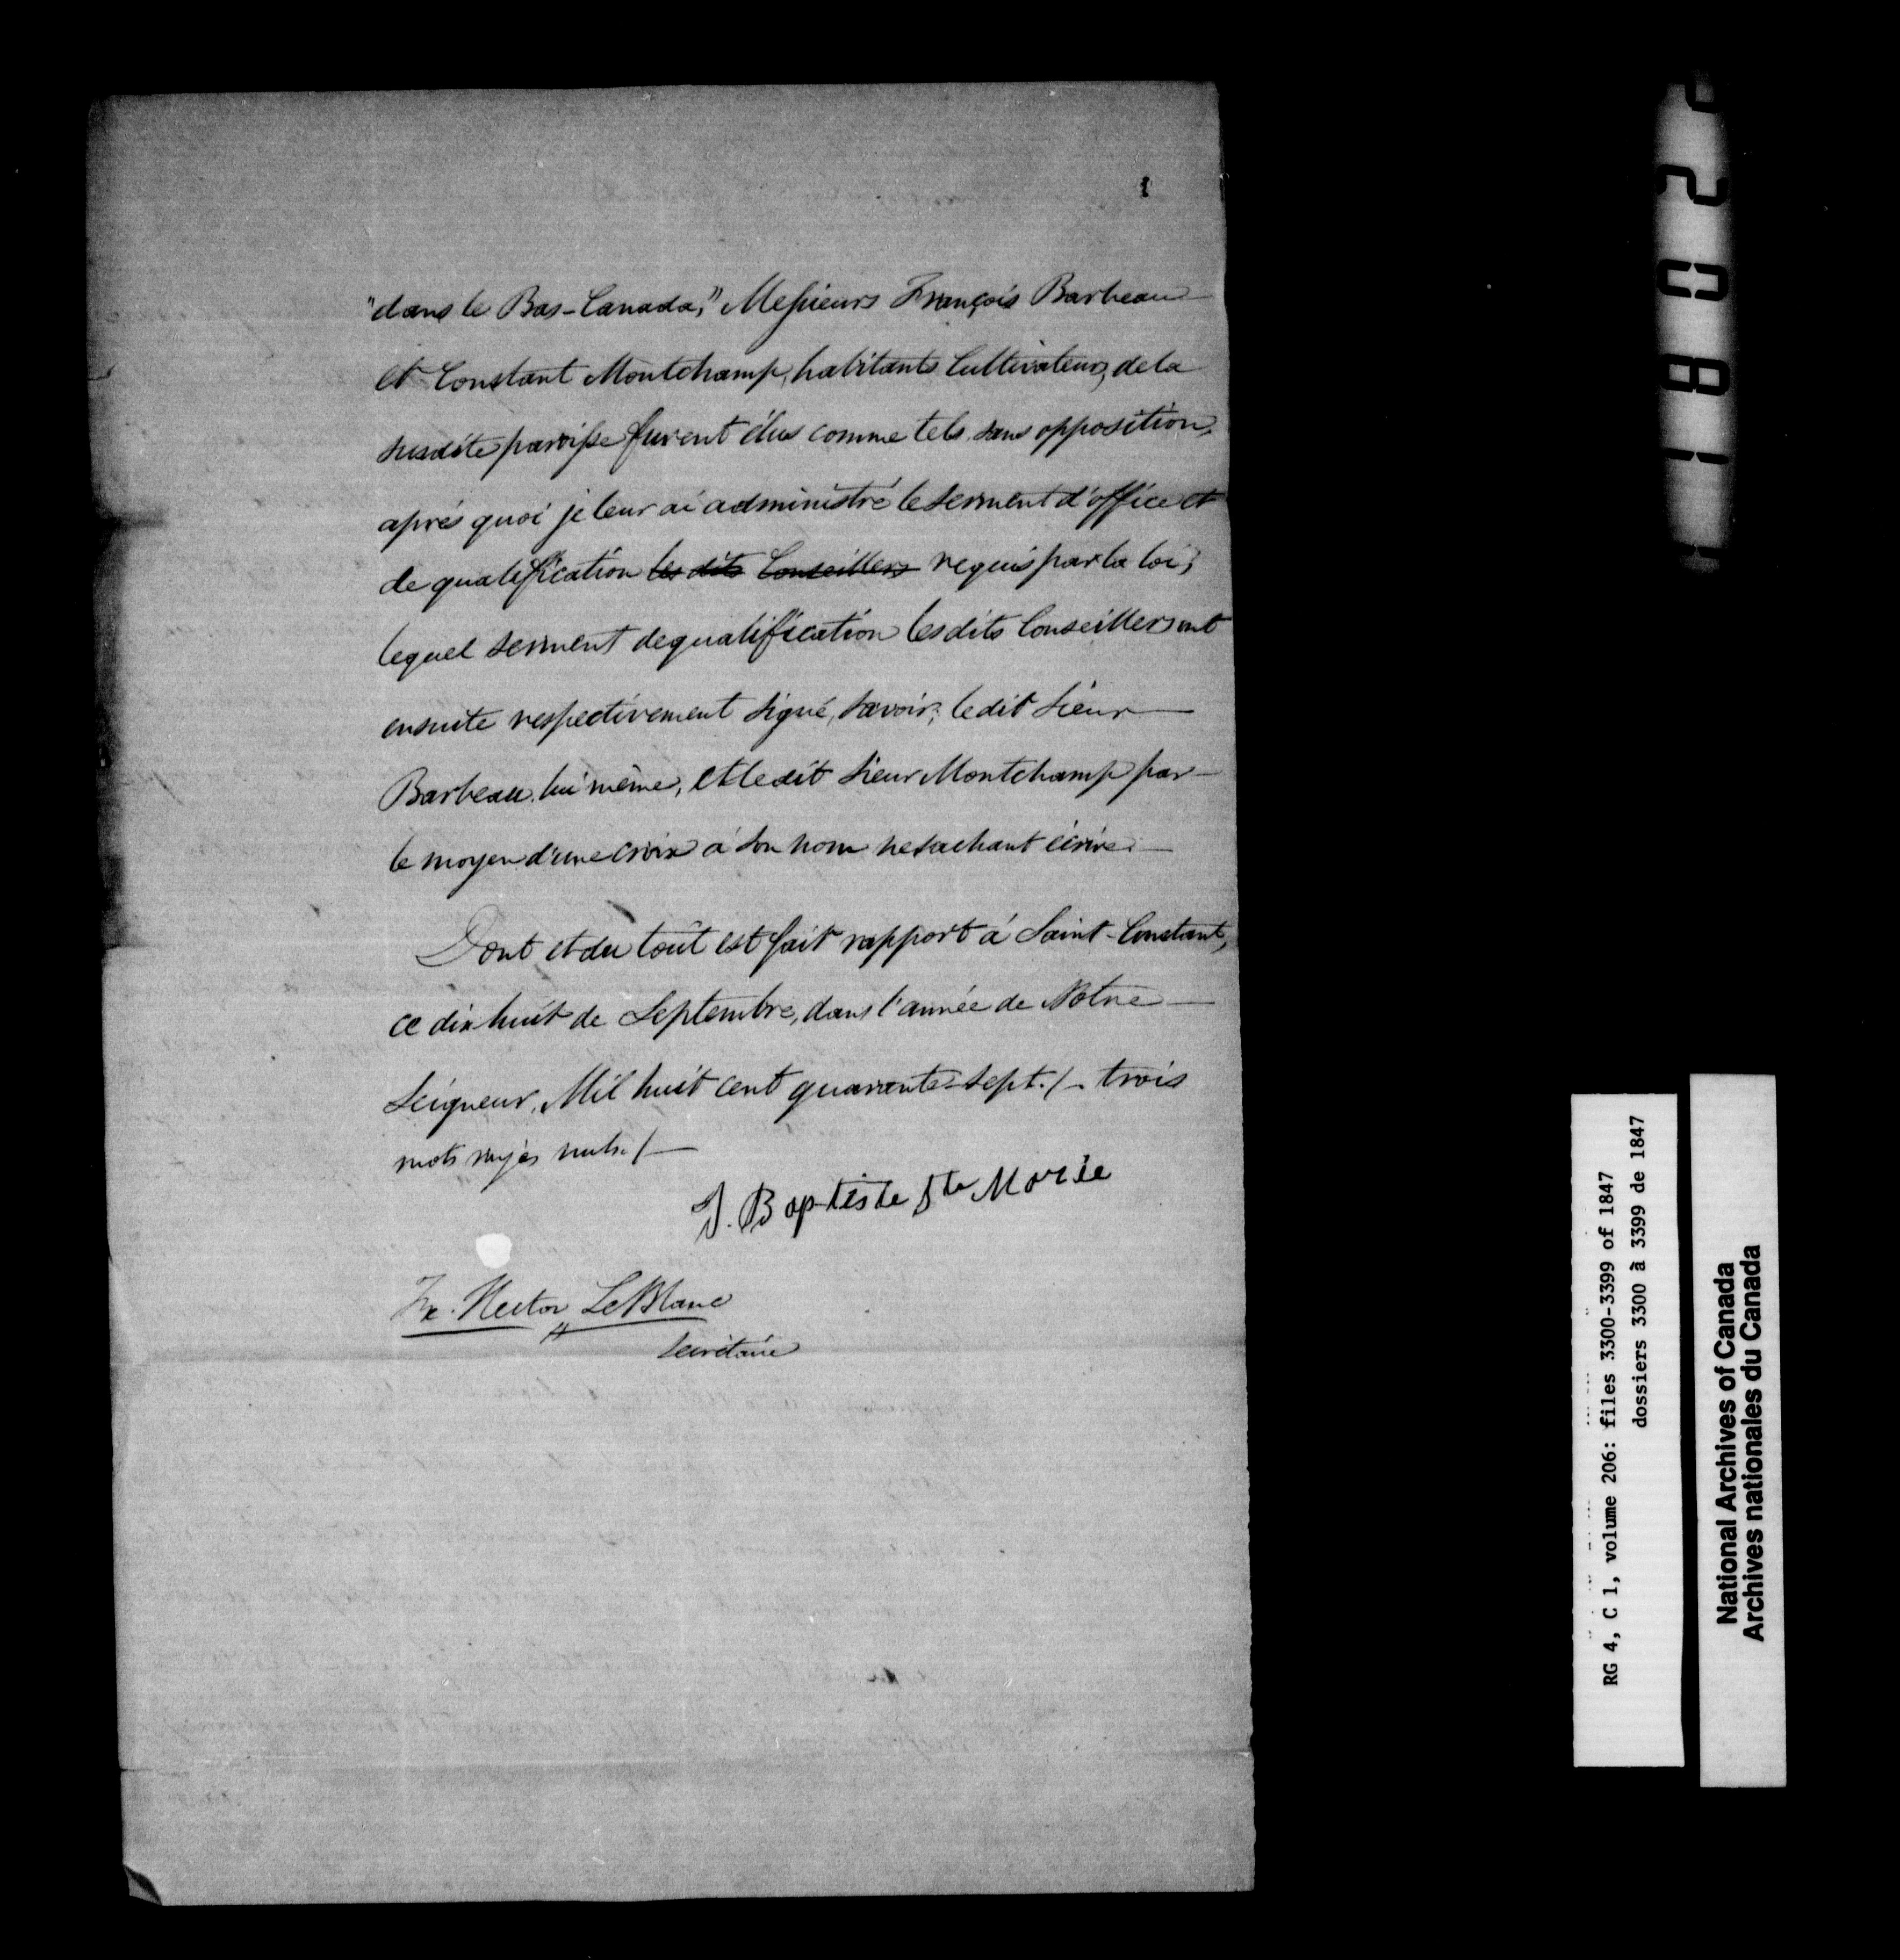 "dans le Bas-Canada," Messieurs François Barbeau
et Constant Montchamp, habitants Cultivateurs, de la
susdite paroisse furent élus comme tels, sans opposition,
après quoi je leur ai administré le serment d'office et
de qualification les dits Conseillers requis par la loi;
lequel serment de qualification les dits Conseillers ont
ensuite respectivement signé, savoir; le dit Sieur
Barbeau lui même, et le dit Sieur Montchamp par
le moyen d'une croix à son nom ne sachant écrire.
Dont et du tout est fait rapport à Saint-Constant,
ce dix huit de Septembre, dans l'année de Notre
Seigneur, Mil huit cent quarante-sept./- trois
mots rayés nuls./
J. Baptiste Ste Marie
Fx. Hector LeBlanc
Secrétaire
RG 4, C 1, volume 206: files 3300-3399 of 1847
dossiers 3300 à 3399 de 1847
National Archives of Canada
Archives nationales du Canada